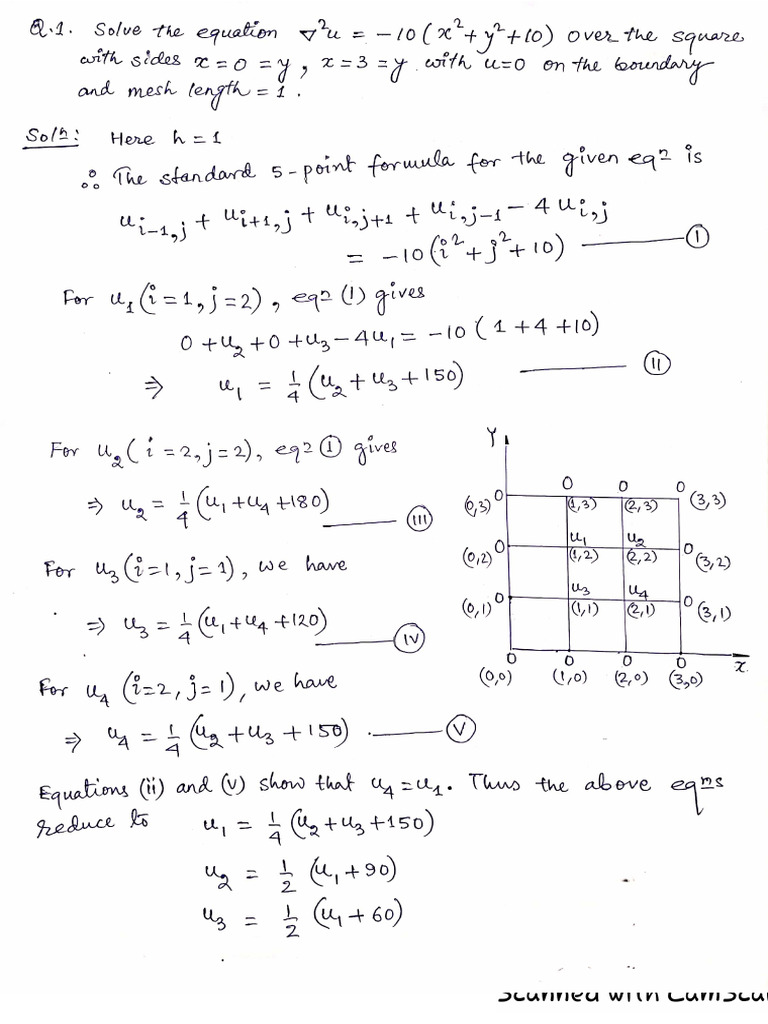 Q.1. Solve the equation ∇²u = -10(x²+y²+10) over the square
with sides x=0=y, x=3=y with u=0 on the boundary
and mesh length=1.
Solⁿ: Here h=1
∴ The standard 5-point formula for the given eqⁿ is
u_{i-1,j} + u_{i+1,j} + u_{i,j+1} + u_{i,j-1} - 4u_{i,j}
= -10(i²+j²+10) ——— Ⓘ
For u₁(i=1, j=2), eqⁿ (1) gives
0+u₂+0+u₃-4u₁ = -10(1+4+10)
⇒ u₁ = 1/4 (u₂+u₃+150) ——— (II)
For u₂(i=2, j=2), eqⁿ ① gives
⇒ u₂ = 1/4 (u₁+u₄+180) ——— (III)
For u₃(i=1, j=1), we have
⇒ u₃ = 1/4 (u₁+u₄+120) ——— (IV)
For u₄ (i=2, j=1), we have
⇒ u₄ = 1/4 (u₂+u₃+150) ——— (V)
Y
0 0 0
(0,3) 0 (1,3) (2,3) (3,3)
u₁ u₂
(0,2) 0 (1,2) (2,2) 0 (3,2)
u₃ u₄
(0,1) 0 (1,1) (2,1) 0 (3,1)
0 0 0 0 x
(0,0) (1,0) (2,0) (3,0)
Equations (ii) and (v) show that u₄=u₁. Thus the above eqⁿˢ
reduce to u₁ = 1/4 (u₂+u₃+150)
u₂ = 1/2 (u₁+90)
u₃ = 1/2 (u₁+60)
Scanned with CamScan